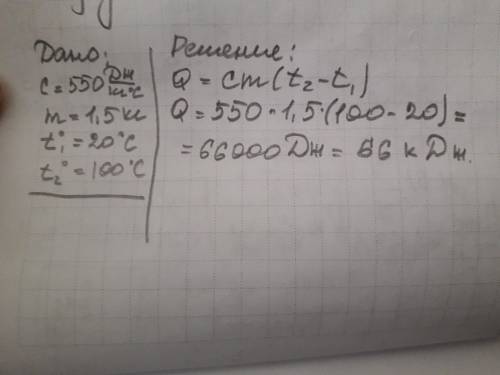 Дано:
c = 550 Дж/кг°C
m = 1,5 кг
t₁° = 20°C
t₂° = 100°C
Решение:
Q = cm(t₂ - t₁)
Q = 550 · 1,5 · (100 - 20) =
= 66000 Дж = 66 кДж.